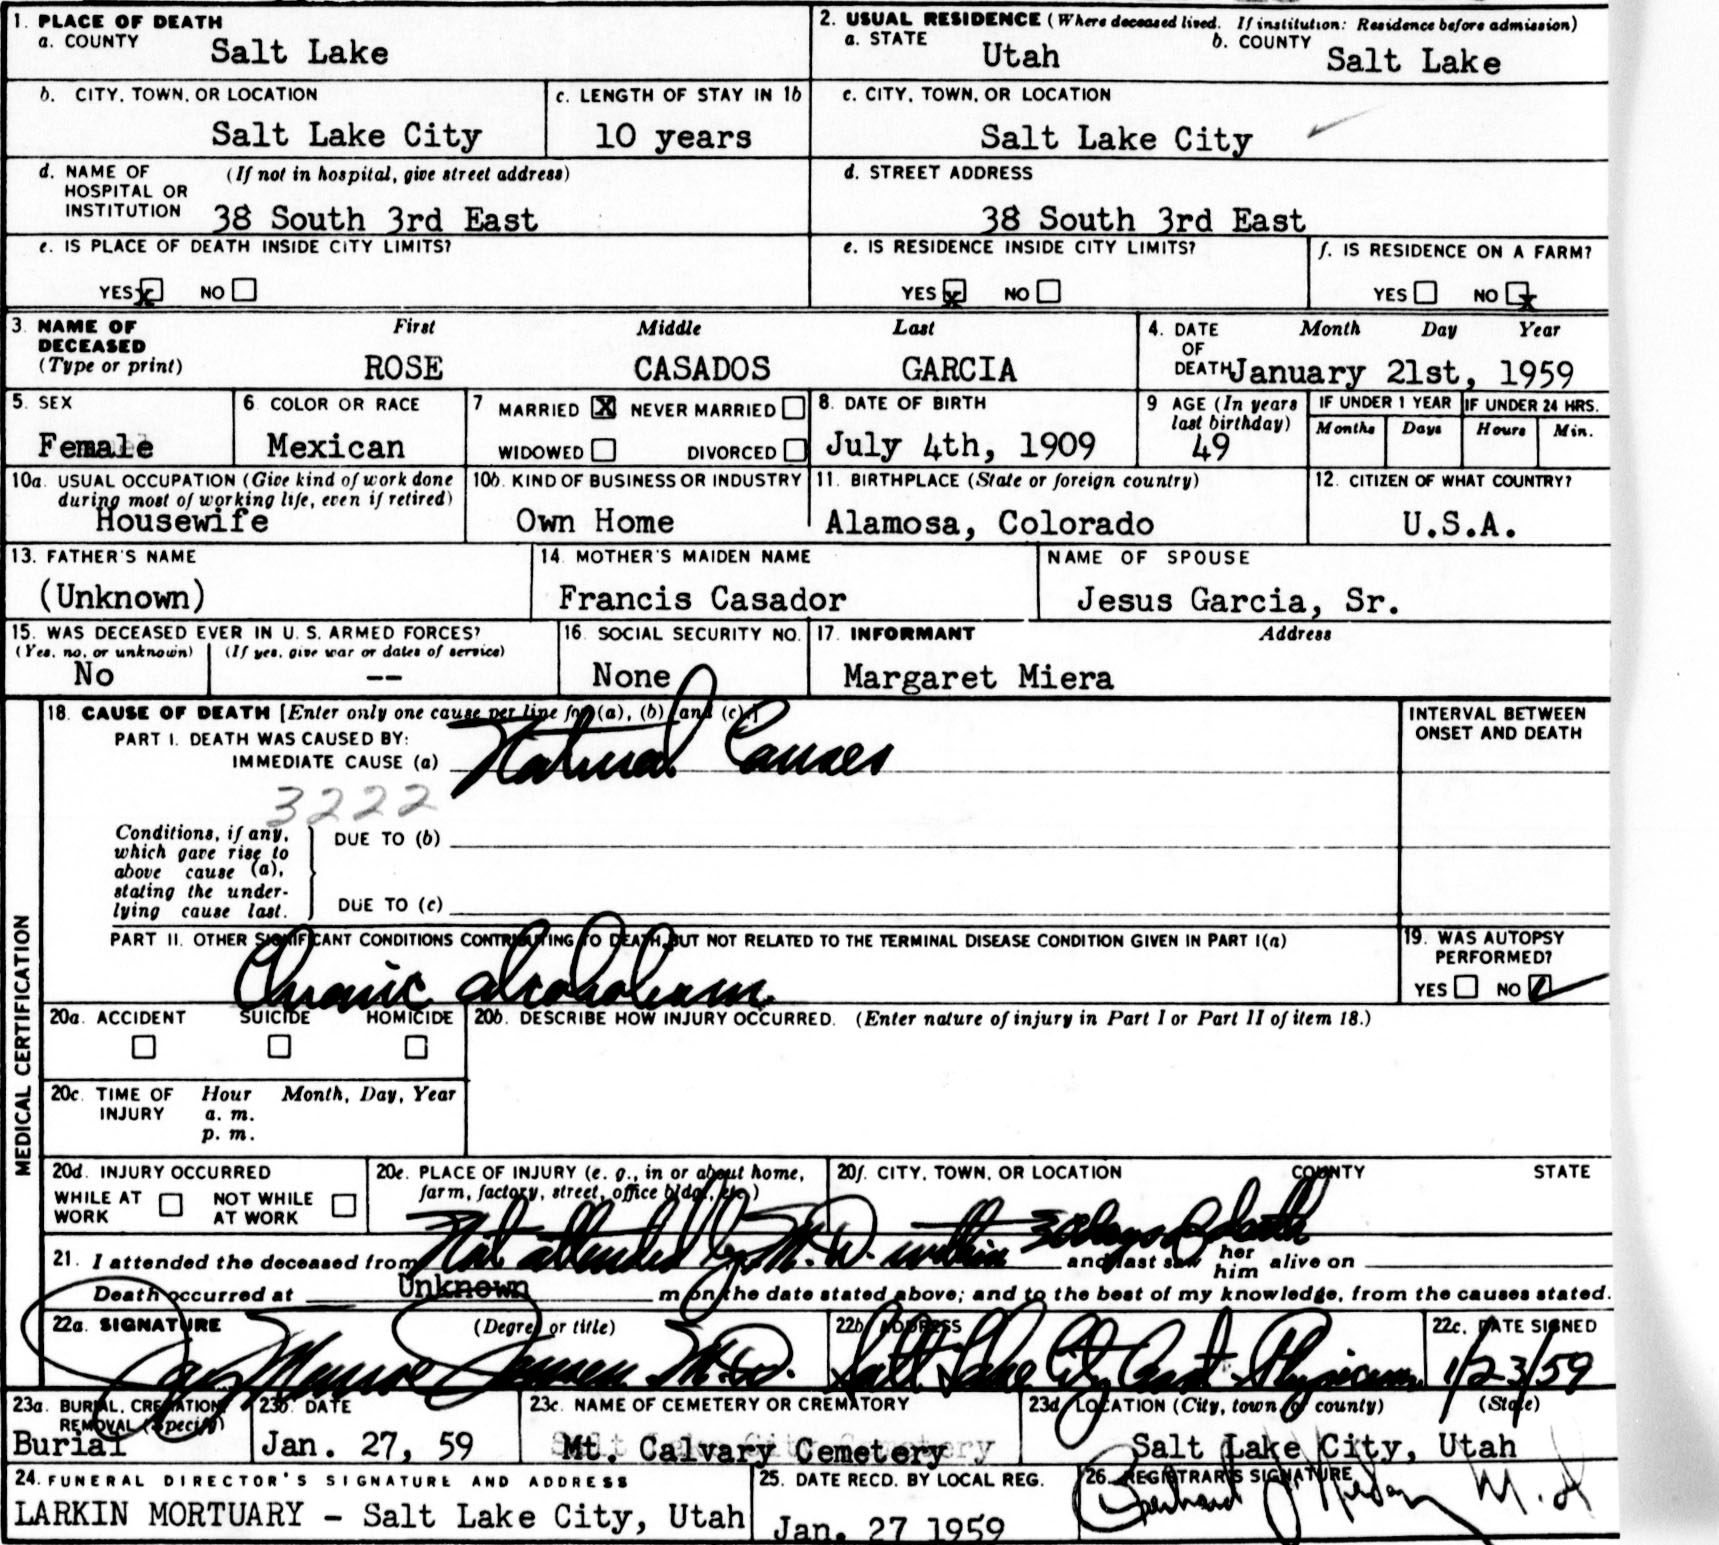 1. PLACE OF DEATH
a. COUNTY
Salt Lake
2. USUAL RESIDENCE (Where deceased lived. If institution: Residence before admission)
a. STATE
Utah
b. COUNTY
Salt Lake
b. CITY, TOWN, OR LOCATION
Salt Lake City
c. LENGTH OF STAY IN 1b
10 years
c. CITY, TOWN, OR LOCATION
Salt Lake City
d. NAME OF HOSPITAL OR INSTITUTION
(If not in hospital, give street address)
38 South 3rd East
d. STREET ADDRESS
38 South 3rd East
e. IS PLACE OF DEATH INSIDE CITY LIMITS?
YES x NO
e. IS RESIDENCE INSIDE CITY LIMITS?
YES x NO
f. IS RESIDENCE ON A FARM?
YES NO x
3. NAME OF DECEASED
(Type or print)
First Middle Last
ROSE CASADOS GARCIA
4. DATE OF DEATH
Month Day Year
January 21st, 1959
5. SEX
Female
6. COLOR OR RACE
Mexican
7 MARRIED X NEVER MARRIED
WIDOWED DIVORCED
8. DATE OF BIRTH
July 4th, 1909
9 AGE (In years last birthday)
49
IF UNDER 1 YEAR
Months Days
IF UNDER 24 HRS.
Hours Min.
10a. USUAL OCCUPATION (Give kind of work done during most of working life, even if retired)
Housewife
10b. KIND OF BUSINESS OR INDUSTRY
Own Home
11. BIRTHPLACE (State or foreign country)
Alamosa, Colorado
12. CITIZEN OF WHAT COUNTRY?
U.S.A.
13. FATHER'S NAME
(Unknown)
14. MOTHER'S MAIDEN NAME
Francis Casador
NAME OF SPOUSE
Jesus Garcia, Sr.
15. WAS DECEASED EVER IN U. S. ARMED FORCES?
(Yes, no, or unknown) (If yes, give war or dates of service)
No --
16. SOCIAL SECURITY NO.
None
17. INFORMANT Address
Margaret Miera
MEDICAL CERTIFICATION
18. CAUSE OF DEATH [Enter only one cause per line for (a), (b) and (c).]
PART I. DEATH WAS CAUSED BY:
IMMEDIATE CAUSE (a) Natural Causes
3222
Conditions, if any, which gave rise to above cause (a), stating the underlying cause last.
DUE TO (b)
DUE TO (c)
INTERVAL BETWEEN ONSET AND DEATH
PART II. OTHER SIGNIFICANT CONDITIONS CONTRIBUTING TO DEATH BUT NOT RELATED TO THE TERMINAL DISEASE CONDITION GIVEN IN PART I(a)
Chronic alcoholism
19. WAS AUTOPSY PERFORMED?
YES NO
20a. ACCIDENT SUICIDE HOMICIDE
20b. DESCRIBE HOW INJURY OCCURRED. (Enter nature of injury in Part I or Part II of item 18.)
20c. TIME OF INJURY
Hour Month, Day, Year
a. m.
p. m.
20d. INJURY OCCURRED
WHILE AT WORK NOT WHILE AT WORK
20e. PLACE OF INJURY (e. g., in or about home, farm, factory, street, office bldg., etc.)
20f. CITY, TOWN, OR LOCATION COUNTY STATE
Not attended by M.D. within 30 days of death
21. I attended the deceased from and last saw her him alive on
Death occurred at Unknown m on the date stated above; and to the best of my knowledge, from the causes stated.
22a. SIGNATURE (Degree or title)
Monroe Jensen M.D.
22b. ADDRESS
Salt Lake City Physician
22c. DATE SIGNED
1/23/59
23a. BURIAL, CREMATION REMOVAL (Specify)
Burial
23b. DATE
Jan. 27, 59
23c. NAME OF CEMETERY OR CREMATORY
Mt. Calvary Cemetery
23d LOCATION (City, town, or county) (State)
Salt Lake City, Utah
24. FUNERAL DIRECTOR'S SIGNATURE AND ADDRESS
LARKIN MORTUARY - Salt Lake City, Utah
25. DATE RECD. BY LOCAL REG.
Jan. 27 1959
26. REGISTRAR'S SIGNATURE
M.D